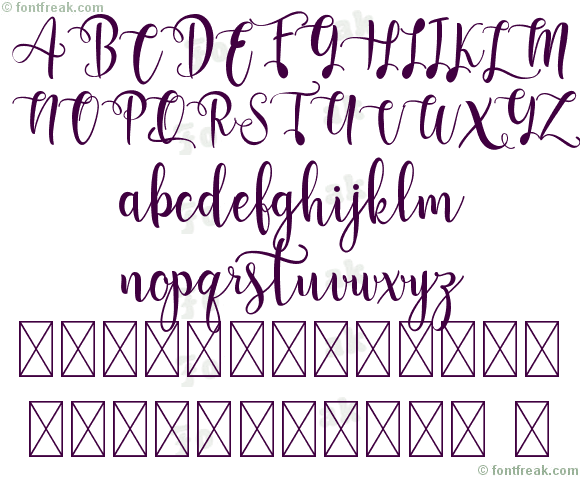 © fontfreak.com
ABCDEFGHIJKLM
NOPQRSTUVWXYZ
abcdefghijklm
nopqrstuvwxyz
© fontfreak.com